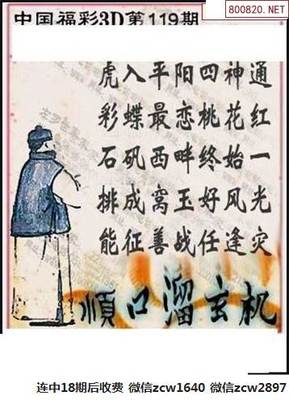 800820.NET
中国福彩3D第119期
虎入平阳四神通
彩蝶最恋桃花红
石矶西畔终始一
排成窝玉好风光
能征善战任逢灾
順口溜玄机
连中18期后收费 微信zcw1640 微信zcw2897